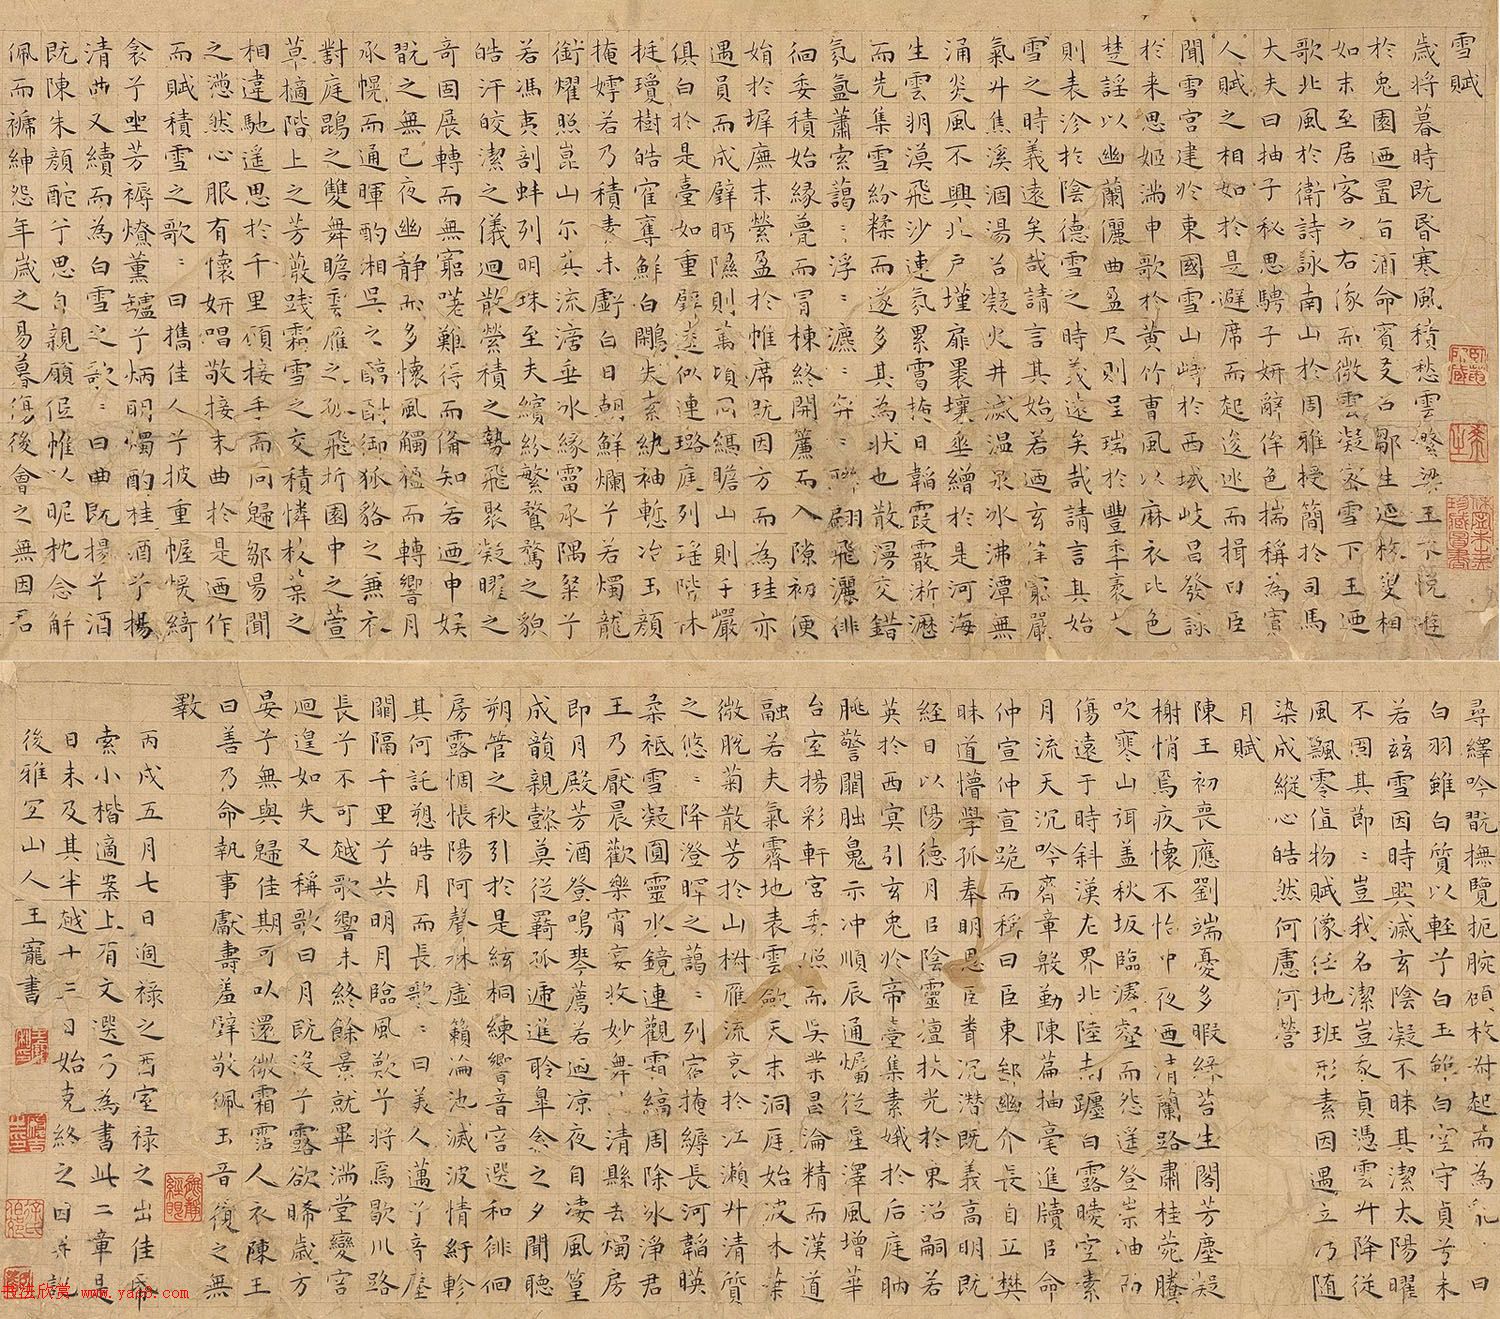 雪賦
歲將暮時既昏寒風積愁雲繁梁王不悅遊
於兔園迺置旨酒命賓友召鄒生延枚叟相
如末至居客之右俄而微雲凝密雪下王迺
歌北風於衛詩詠南山於周雅授簡於司馬
大夫曰抽子秘思騁子妍辭侔色揣稱為寡
人賦之相如於是避席而起逡巡而揖曰臣
聞雪宮建於東國雪山峙於西域岐昌發詠
於來思姬滿申歌於黃竹曹風以麻衣比色
楚謠以幽蘭儷曲盈尺則呈瑞於豐年袤丈
則表沴於陰德雪之時義遠矣哉請言其始
雪之時義遠矣哉請言其始若迺玄律窮嚴
氣升焦溪涸湯谷凝火井滅溫泉冰沸潭無
涌炎風不興北戶墐扉裸壤垂繒於是河海
生雲朔漠飛沙連氛累霭掩日韜霞霰淅瀝
而先集雪紛糅而遂多其為狀也散漫交錯
氛氳蕭索藹:浮:瀌:弈:聯翩飛灑徘
徊委積始緣甍而冒棟終開簾而入隙初便
始於墀廡末縈盈於帷席既因方而為珪亦
遇員而成璧眄隰則萬頃同縞瞻山則千巖
俱白於是臺如重璧逵似連璐庭列瑤階林
挺瓊樹皓寉奪鮮白鷳失素紈袖慙冶玉顏
掩嫮若乃積素未虧白日朝鮮爛兮若燭龍
銜燿照崑山尔其流滂垂冰緣霤承隅粲兮
若馮夷剖蚌列明珠至夫繽紛繁騖之貌
皓汗皎潔之儀迴散縈積之勢飛聚凝曜之
奇固展轉而無窮嗟難得而備知若迺申娛
翫之無已夜幽靜而多懷風觸楹而轉響月
承幌而通暉酌湘吳之醇酎御狐貉之兼衣
對庭鵾之雙舞瞻雲雁之孤飛折園中之萱
草摘階上之芳薇踐霜雪之交積憐枝葉之
相違馳遙思於千里願接手而同歸鄒陽聞
之懣然心服有懷妍唱敬接末曲於是迺作
而賦積雪之歌:曰攜佳人兮披重幄煖綺
衾兮坐芳褥燎薰罏兮炳明燭酌桂酒兮揚
清曲又續而為白雪之歌:曰曲既揚兮酒
既陳朱顏酡兮思自親願低帷以昵枕念解
佩而褫紳怨年歲之易暮傷後會之無因君
尋繹吟翫撫覽扼腕顧枚叔起而為亂:曰
白羽雖白質以輕兮白玉雖白空守貞兮未
若玆雪因時興滅玄陰凝不昧其潔太陽曜
不固其節:豈我名潔豈我貞憑雲升降從
風飄零值物賦像任地班形素因遇立污隨
染成縱心皓然何慮何營
月賦
陳王初喪應劉端憂多暇綠苔生閣芳塵凝
榭悄焉疚懷不怡中夜迺清蘭路肅桂菀騰
吹寒山弭蓋秋坂臨濬壑而怨遙登崇岫而
傷遠于時斜漢左界北陸南躔白露曖空素
月流天沉吟齊章殷勤陳篇抽毫進牘臣命
仲宣仲宣跪而稱曰臣東鄙幽介長自丘樊
昧道懵學孤奉明恩臣聞沉潛既義高明既
經日以陽德月以陰靈擅扶光於東沼嗣若
英於西冥引玄兔於帝臺集素娥於后庭朒
朓警闕朏魄示冲順辰通燭從星澤風增華
台室揚彩軒宮委照而吳業昌淪精而漢道
融若夫氣霽地表雲斂天末洞庭始波木葉
微脫菊散芳於山椒雁流哀於江瀨升清質
之悠:降澄暉之藹:列宿掩縟長河韜暎
柔祗雪凝圓靈水鏡連觀霜縞周除冰淨君
王乃厭晨歡樂宵宴收妙舞弛清縣去燭房
即月殿芳酒登鳴琴薦若迺涼夜自淒風篁
成韻親懿莫從羇孤遞進聆皐禽之夕聞聽
朔管之秋引於是絃桐練響音容選和徘徊
房露惆悵陽阿聲林虛籟淪池滅波情紆軫
其何託愬皓月而長歌:曰美人邁兮音塵
闕隔千里兮共明月臨風歎兮將焉歇川路
長兮不可越歌響未終餘景就畢滿堂變容
迴遑如失又稱歌曰月既沒兮露欲晞歲方
晏兮無與歸佳期可以還微霜霑人衣陳王
曰善乃命執事獻壽羞璧敬佩玉音復之無
斁
丙戌五月七日過祿之西室祿之出佳帋
索小楷適案上有文選乃為書此二章是
日未及其半越十三日始克終之因并記
後雅宜山人王寵書
书法欣赏 www.yac8.com